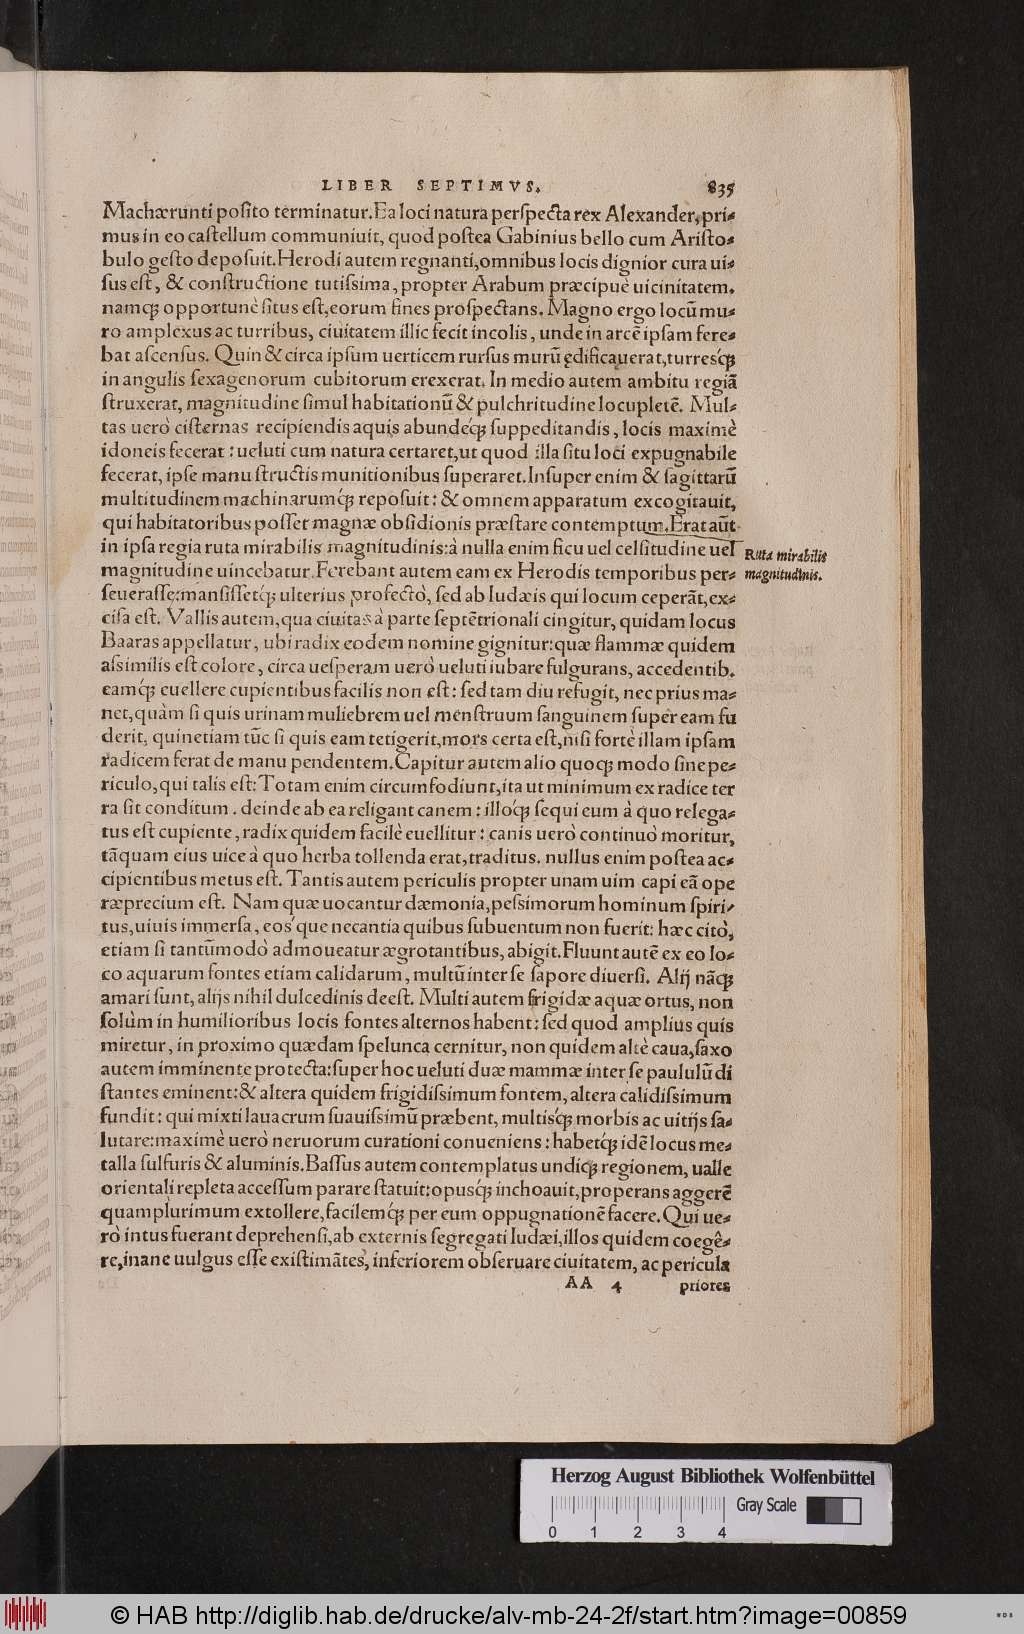 LIBER SEPTIMVS. 835
Machærunti posito terminatur. Ea loci natura perspecta rex Alexander, pri-
mus in eo castellum communiuit, quod postea Gabinius bello cum Aristo-
bulo gesto deposuit. Herodi autem regnanti, omnibus locis dignior cura ui-
sus est, & constructione tutissima, propter Arabum præcipuè uicinitatem.
namq; opportunè situs est, eorum fines prospectans. Magno ergo locũ mu-
ro amplexus ac turribus, ciuitatem illic fecit incolis, unde in arcẽ ipsam fere-
bat ascensus. Quin & circa ipsum uerticem rursus murũ ędificauerat, turresq́;
in angulis sexagenorum cubitorum erexerat. In medio autem ambitu regiã
struxerat, magnitudine simul habitationũ & pulchritudine locupletẽ. Mul-
tas uerò cisternas recipiendis aquis abundeq́; suppeditandis, locis maximè
idoneis fecerat: ueluti cum natura certaret, ut quod illa situ loci expugnabile
fecerat, ipse manu structis munitionibus superaret. Insuper enim & sagittarũ
multitudinem machinarumq́; reposuit: & omnem apparatum excogitauit,
qui habitatoribus posset magnæ obsidionis præstare contemptum. Erat aũt
in ipsa regia ruta mirabilis magnitudinis: à nulla enim ficu uel celsitudine uel
Ruta mirabilis
magnitudinis.
magnitudine uincebatur. Ferebant autem eam ex Herodis temporibus per-
seuerasse: mansissetq́; ulterius profectò, sed ab Iudæis qui locum ceperãt, ex-
cisa est. Vallis autem, qua ciuitas à parte septẽtrionali cingitur, quidam locus
Baaras appellatur, ubi radix eodem nomine gignitur: quæ flammæ quidem
assimilis est colore, circa uesperam uerò ueluti iubare fulgurans, accedentib.
eamq́; euellere cupientibus facilis non est: sed tam diu refugit, nec prius ma-
net, quàm si quis urinam muliebrem uel menstruum sanguinem super eam fu
derit, quinetiam tũc si quis eam tetigerit, mors certa est, nisi fortè illam ipsam
radicem ferat de manu pendentem. Capitur autem alio quoq; modo sine pe-
riculo, qui talis est: Totam enim circumfodiunt, ita ut minimum ex radice ter
ra sit conditum. deinde ab ea religant canem: illoq́; sequi eum à quo relega-
tus est cupiente, radix quidem facilè euellitur: canis uerò continuò moritur,
tãquam eius uice à quo herba tollenda erat, traditus. nullus enim postea ac-
cipientibus metus est. Tantis autem periculis propter unam uim capi eã ope
ræprecium est. Nam quæ uocantur dæmonia, pessimorum hominum spiri-
tus, uiuis immersa, eośque necantia quibus subuentum non fuerit: hæc citò,
etiam si tantũmodò admoueatur ægrotantibus, abigit. Fluunt autẽ ex eo lo-
co aquarum fontes etiam calidarum, multũ inter se sapore diuersi. Alij nãq;
amari sunt, alijs nihil dulcedinis deest. Multi autem frigidæ aquæ ortus, non
solùm in humilioribus locis fontes alternos habent: sed quod amplius quis
miretur, in proximo quædam spelunca cernitur, non quidem altè caua, saxo
autem imminente protecta: super hoc ueluti duæ mammæ inter se paululũ di
stantes eminent: & altera quidem frigidissimum fontem, altera calidissimum
fundit: qui mixti lauacrum suauissimũ præbent, multisq́; morbis ac uitijs sa-
lutare: maximè uerò neruorum curationi conueniens: habetq́; idẽ locus me-
talla sulfuris & aluminis. Bassus autem contemplatus undiq; regionem, ualle
orientali repleta accessum parare statuit: opusq́; inchoauit, properans aggerẽ
quamplurimum extollere, facilemq́; per eum oppugnationẽ facere. Qui ue-
rò intus fuerant deprehensi, ab externis segregati Iudæi, illos quidem coegê-
re, inane uulgus esse existimãtes, inferiorem obseruare ciuitatem, ac pericula
AA 4 priores
Herzog August Bibliothek Wolfenbüttel
Gray Scale
0 1 2 3 4
© HAB http://diglib.hab.de/drucke/alv-mb-24-2f/start.htm?image=00859